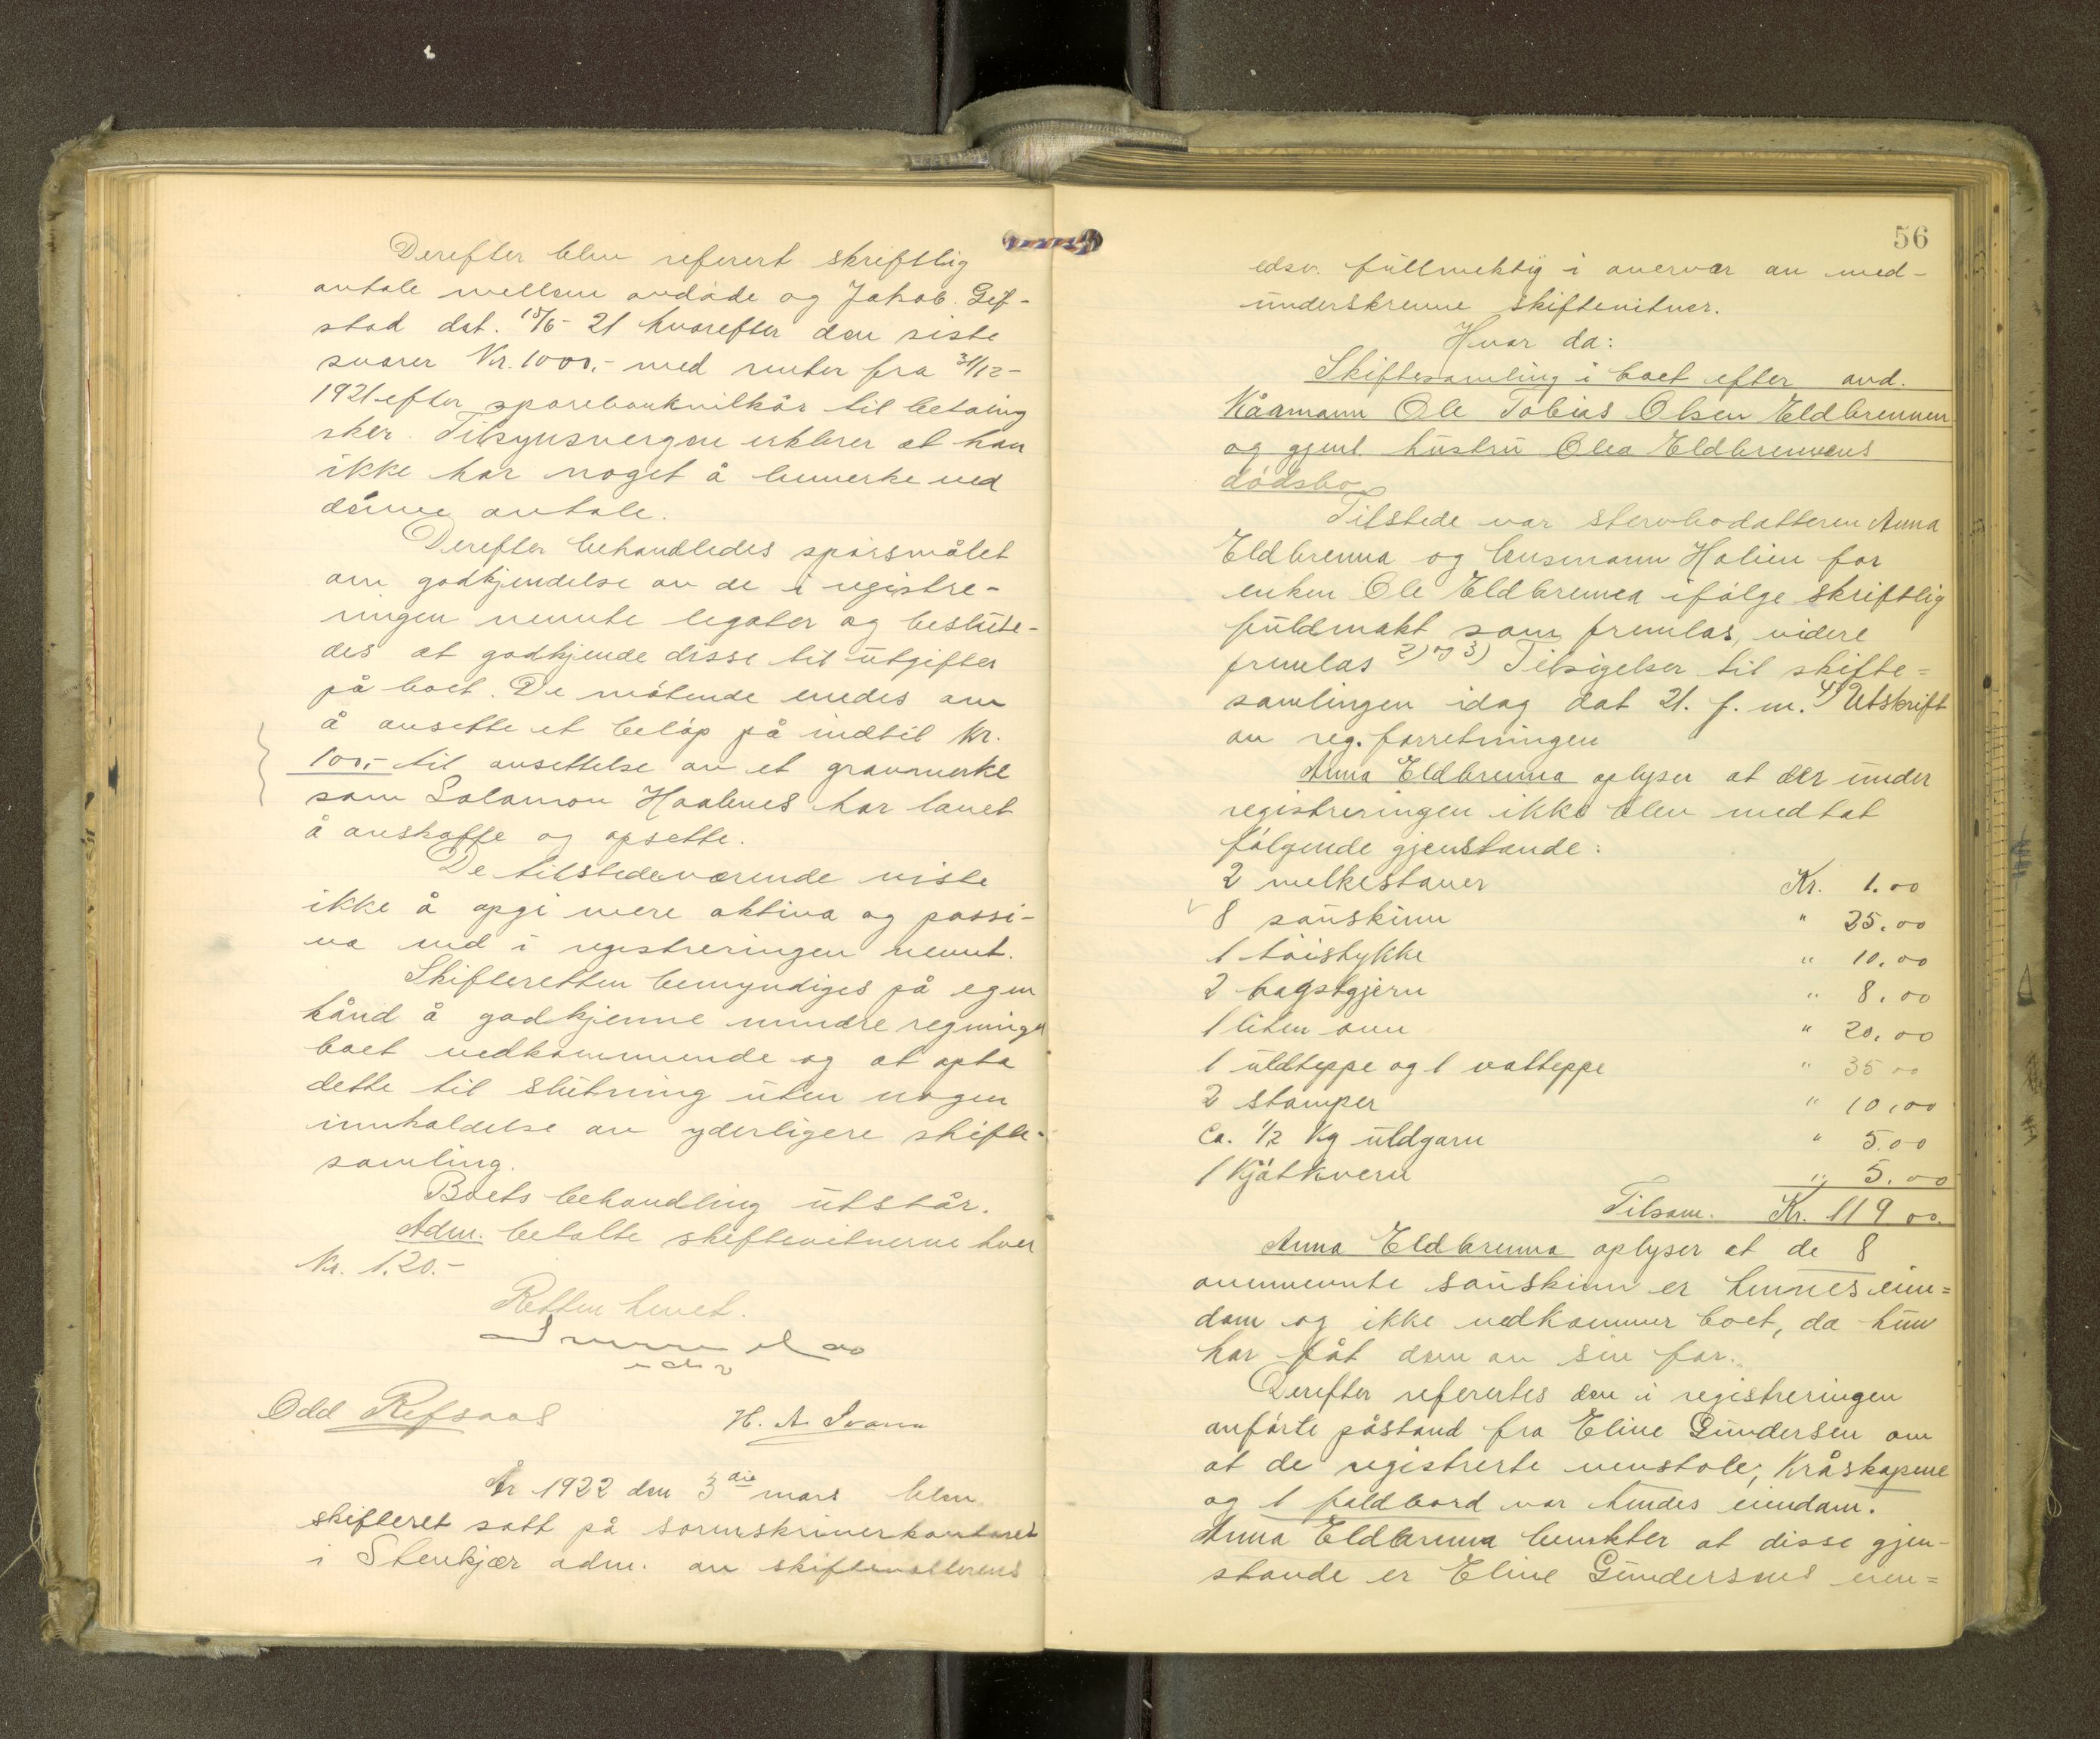 Derefter blev referert skriftlig
avtale mellem avdøde og Jakob Gif-
stad dat. 15/6- 21 hvorefter den siste
svarer Kr. 1000,- med renter fra 31/12-
1921 efter sparebankvilkår til betaling
sker. Tilsynsvergen erklerer at han
ikke har noget å bemerke ved
denne avtale.
Derefter behandledes spørsmålet
om godkjendelse av de i registre-
ringen nevnte legater og beslute-
des at godkjende disse til utgifter
på boet. De møtende enedes om
å ansette et beløp på indtil kr.
100,- til ansettelse av et gravmerke
som Salamon Haabnes har lovet
å anskaffe og opsette.
De tilstedeværende viste
ikke å opgi mere aktiva og passi-
va end i registreringen nevnt.
Skifteretten bemyndiges på egen
hånd å godkjenne mindre regninger
boet vedkommende og at opta
dette til slutning uten nogen
innholdelse av yderligere skifte-
samling.
Boets behandling utstår.
Adm. betalte skiftevitnerne hver
Kr. 1.20.-
Retten hevet.
edsv
Odd Refsaas H. A. Svann
År 1922 den 3die mars blev
skifteret satt på sorenskriverkontoret
i Stenkjær adm. av skifteforvalterens
56
edsv. fullmektig i overvær av med-
underskrevne skiftevitner.
Hvor da:
Skiftesamling i boet efter avd.
Kårmann Ole Tobias Olsen Eldbrennen
og gjenl. hustru Olea Eldbrennens
dødsbo
Tilstede var stervbodatteren Anna
Eldbrenna og lensmann Holien for
enken Ole Eldbrenna ifølge skriftlig
fuldmakt som fremlas, videre
fremlas 2) og 3) Tilsigelser til skifte=
samlingen idag dat 21. f. m. 4) Utskrift
av reg. forretningen
Anna Eldbrenna oplyser at der under
registreringen ikke blev medtat
følgende gjenstande:
2 melkestaver Kr. 1.00
8 sauskinn " 25.00
1 tøistykke " 10.00
2 bagstgjern " 8.00
1 liten ovn " 20.00
1 uldteppe og 1 vatteppe " 35 00
2 stamper " 10.00
Ca. 1/2 Kg uldgarn " 5.00
1 Kjøtkvern " 5.00
Tilsam. Kr. 119 00.
Anna Eldbrenna oplyser at de 8
ovennevnte sauskinn er hennes eien=
dom og ikke vedkommer boet, da hun
har fåt dem av sin far.
Derefter refererles den i registreringen
anførte påstand fra Eline Gundersen om
at de registrerte venstole, Kråskapene
og 1 foldbord var hendes eiendom.
Anna Eldbrenna benekter at disse gjen-
stande er Eline Gundersens eien=